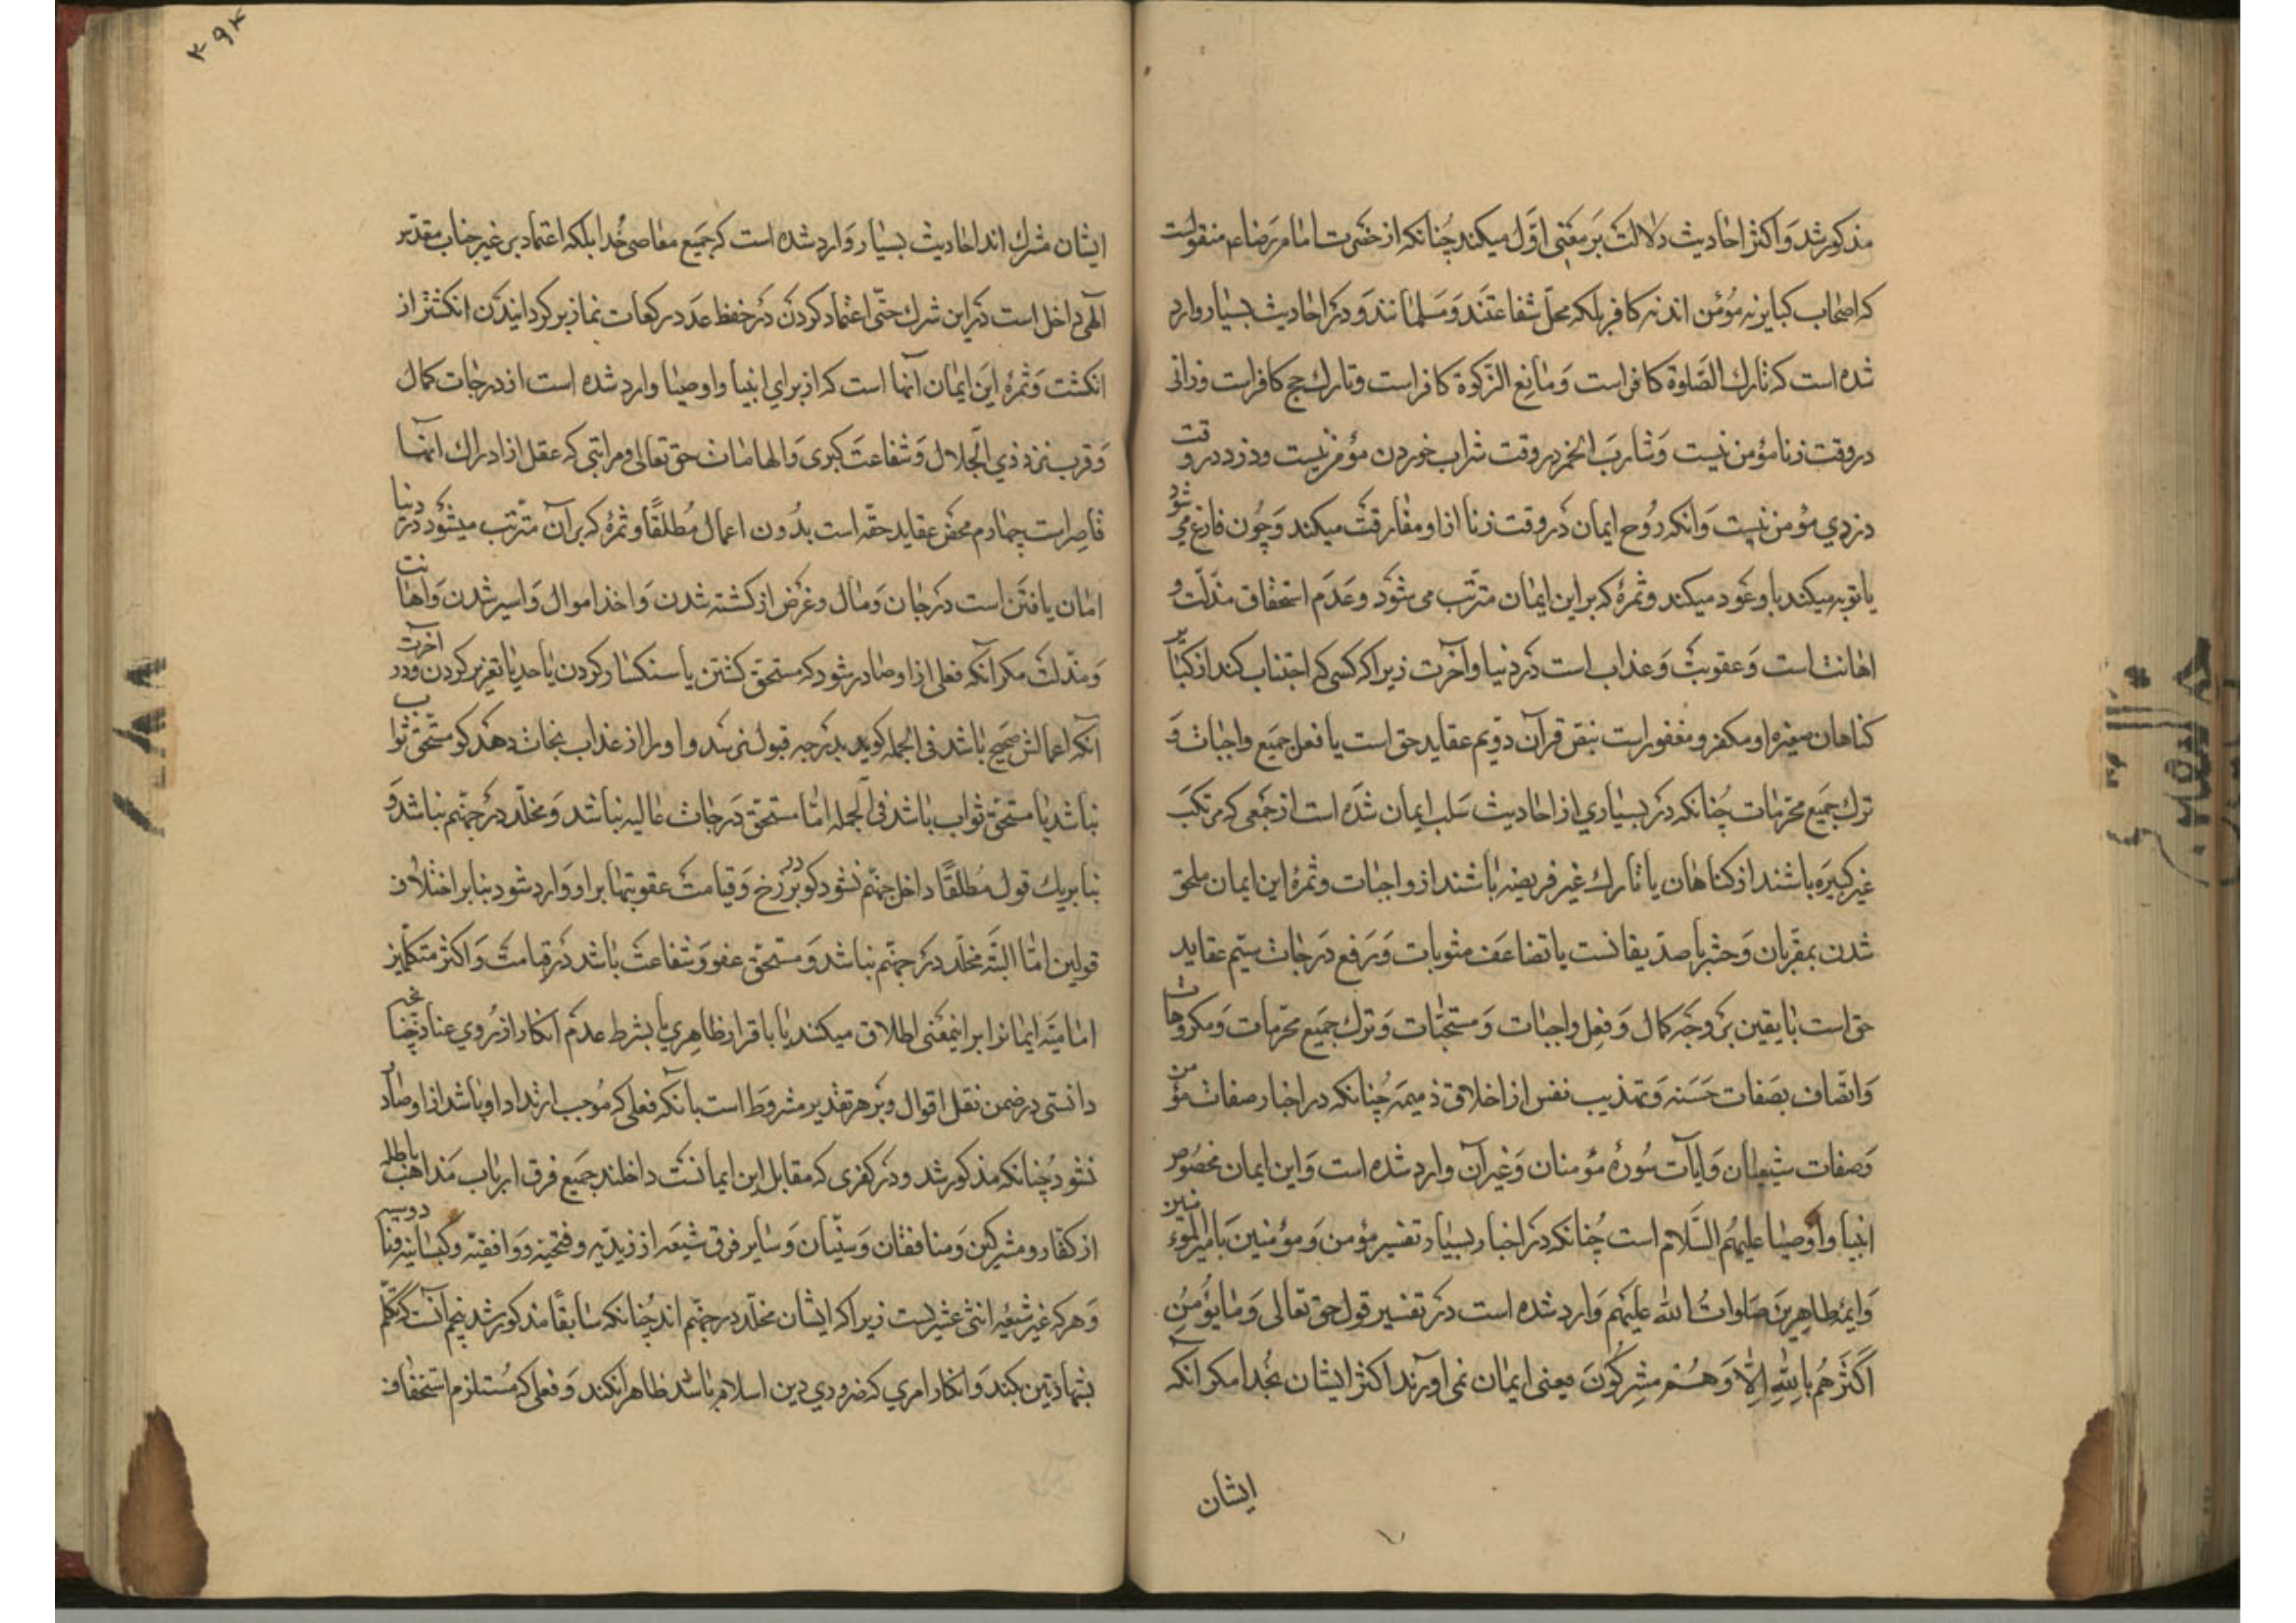 مذکور شد و اکثر احادیث دلالت بر معنی اول میکند چنانکه از حضرت امام رضاء م منقولست
که اصحاب کبایر نه مؤمن اند نه کافر بلکه محل شفاعتند و مسلمانند و در احادیث بسیار وارد
شده است که تارک الصلوة کافر است و مانع الزکوة کافر است و تارک حج کافر است و زانی
در وقت زنا مؤمن نیست و شارب الخمر در وقت شراب خوردن مؤمن نیست و دزد در وقت
دزدی مؤمن نیست و آنکه روح ایمان در وقت زنا از او مفارقت میکند و چون فارغ می شود
یا توبه میکند باو عود میکند و ثمرهٔ که بر این ایمان مترتب می شود و عدم استحقاق مذلت و
اهانت است و عقوبت و عذاب است در دنیا و آخرت زیرا که کسی که اجتناب کند از کبایر
کناهان صغیره او مکفر و مغفور است بنص قرآن دویم عقاید حق است یا فعل جمیع واجبات و
ترک جمیع محرمات چنانکه در بسیاری از احادیث سلب ایمان شده است از جمعی که مرتکب
غیر کبیره باشند از کناهان یا تارک غیر فریضه باشند از واجبات و ثمرهٔ این ایمان ملحق
شدن بمقربان و حشر با صدیقانست یا تضاعف مثوبات و رفع درجات سیم عقاید
حق است با یقین بر وجه کمال و فعل واجبات و مستحبات و ترک جمیع محرمات و مکروهات
و اتصاف بصفات حسنه و تهذیب نفس از اخلاق ذمیمه چنانکه در اخبار صفات مؤمن
و صفات شیعیان و آیات سورهٔ مؤمنان و غیر آن وارد شده است و این ایمان مخصوص
انبیا و اوصیا علیهم السلام است چنانکه در اخبار بسیار تفسیر مؤمن و مؤمنین بامیر المؤمنین
و ایمه طاهرین صلوات الله علیهم وارد شده است در تفسیر قول حق تعالی و ما یؤمن
اکثرهم بالله الا و هم مشرکون یعنی ایمان نمی اورند اکثر ایشان بخدا مکر آنکه
ایشان
۴۹۴
ایشان مشرک اند احادیث بسیار وارد شده است که جمیع معاصی خدا بلکه اعتماد بر غیر جناب مقدس
الهی داخل است در این شرک حتی اعتماد کردن در حفظ عدد رکعات نماز بر کردانیدن انکشتر از
انکشت و ثمرهٔ این ایمان آنها است که از برای انبیا و اوصیا وارد شده است از درجات کمال
و قرب نزد ذی الجلال و شفاعت کبری و الهامات حق تعالی و مراتبی که عقل از ادراک آنها
قاصر است چهارم محض عقاید حقه است بدون اعمال مطلقا و ثمرهٔ که بر آن مترتب میشود در دنیا
امان یافتن است در جان و مال و غرض از کشته شدن و اخذ اموال و اسیر شدن و اهانت
و مذلت مکر آنکه فعلی از او صادر شود که مستحق کشتن یا سنکسار کردن یا حد یا تعزیر کردن و در آخرت
آنکه اعمالش صحیح باشد فی الجمله کوید بدرجه قبول نرسد و او را از عذاب نجات دهد کو مستحق ثواب
نباشد یا مستحق ثواب باشد فی الجمله اما مستحق درجات عالیه نباشد و مخلد در جهنم نباشد و
بنا بر یک قول مطلقا داخل جهنم نشود کو در برزخ و قیامت عقوبتها بر او وارد شود بنابر اختلاف
قولین اما البته مخلد در جهنم نباشد و مستحق عفو و شفاعت باشد در قیامت و اکثر متکلمین
امامیه ایمانرا بر اینمعنی اطلاق میکنند یا با قرار ظاهری یا بشرط عدم انکار از روی عناد چنانچه
دانستی در ضمن نقل اقوال و بر هر تقدیر مشروط است بآنکه فعلی که موجب ارتداد او باشد از او صادر
نشود چنانکه مذکور شد و در کفری که مقابل این ایمانست داخلند جمیع فرق ارباب مذاهب باطله
از کفار و مشرکین و منافقان و سنیان و سایر فرق شیعه از زیدیه و فتحیه و واقفیه و کیسانیه و ناووسیه
و هر که غیر شیعه اثنی عشریست زیرا که ایشان مخلد در جهنم اند چنانکه سابقا مذکور شد پنجم آنست که تکلم
بشهادتین بکند و انکار امری که ضروری دین اسلام باشد ظاهرا نکند و فعلی که مستلزم استخفاف